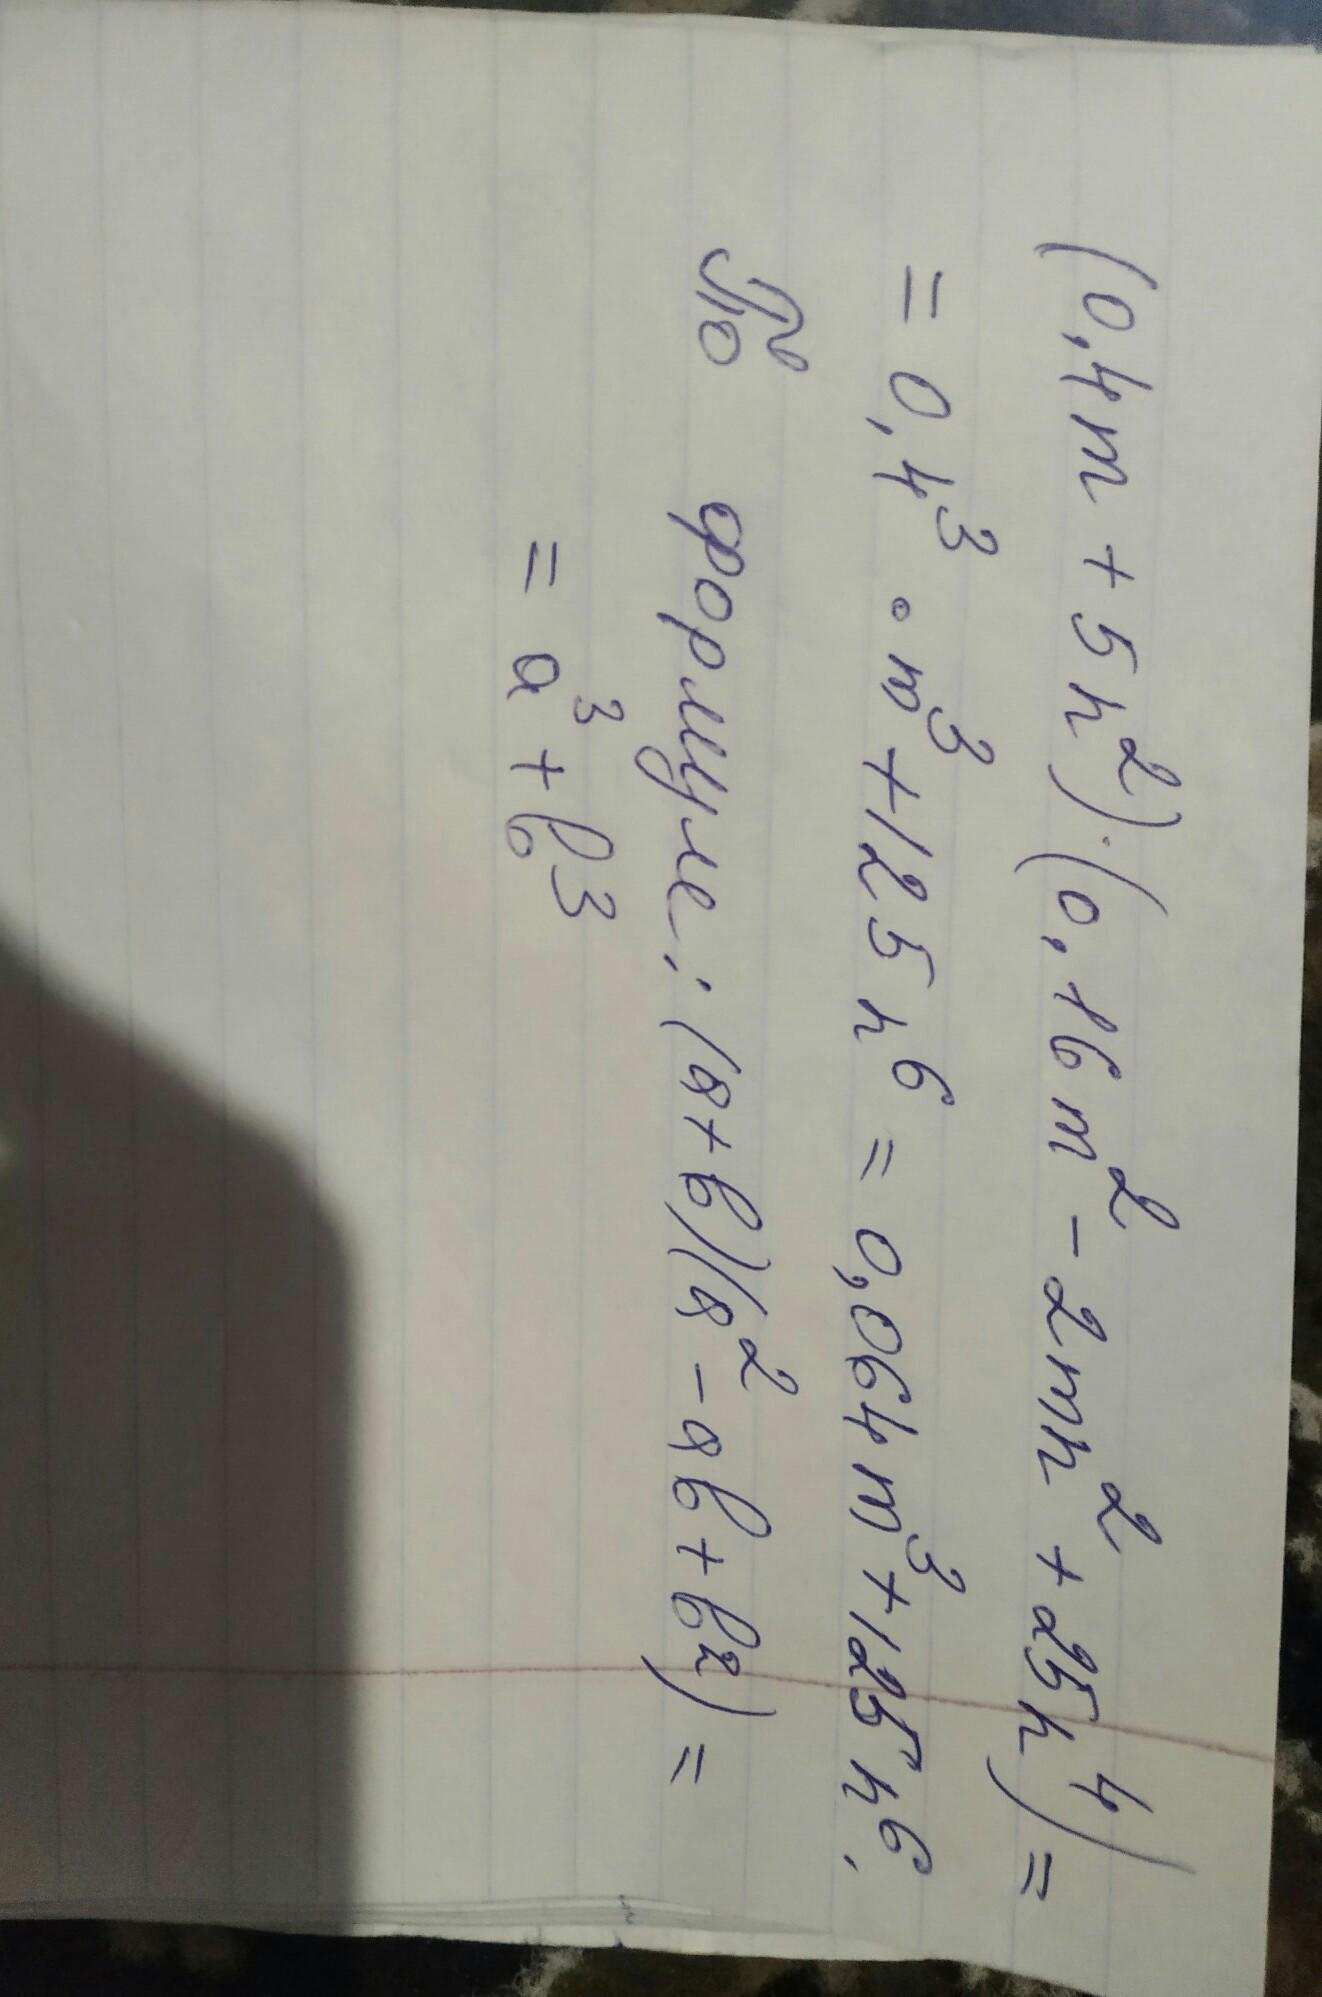 (0,4m + 5n²)·(0,16m² - 2mn² + 25n⁴) =
= 0,4³ · m³ + 125n⁶ = 0,064m³ + 125n⁶.
По формуле: (a+b)(a² - ab + b²) =
= a³ + b³